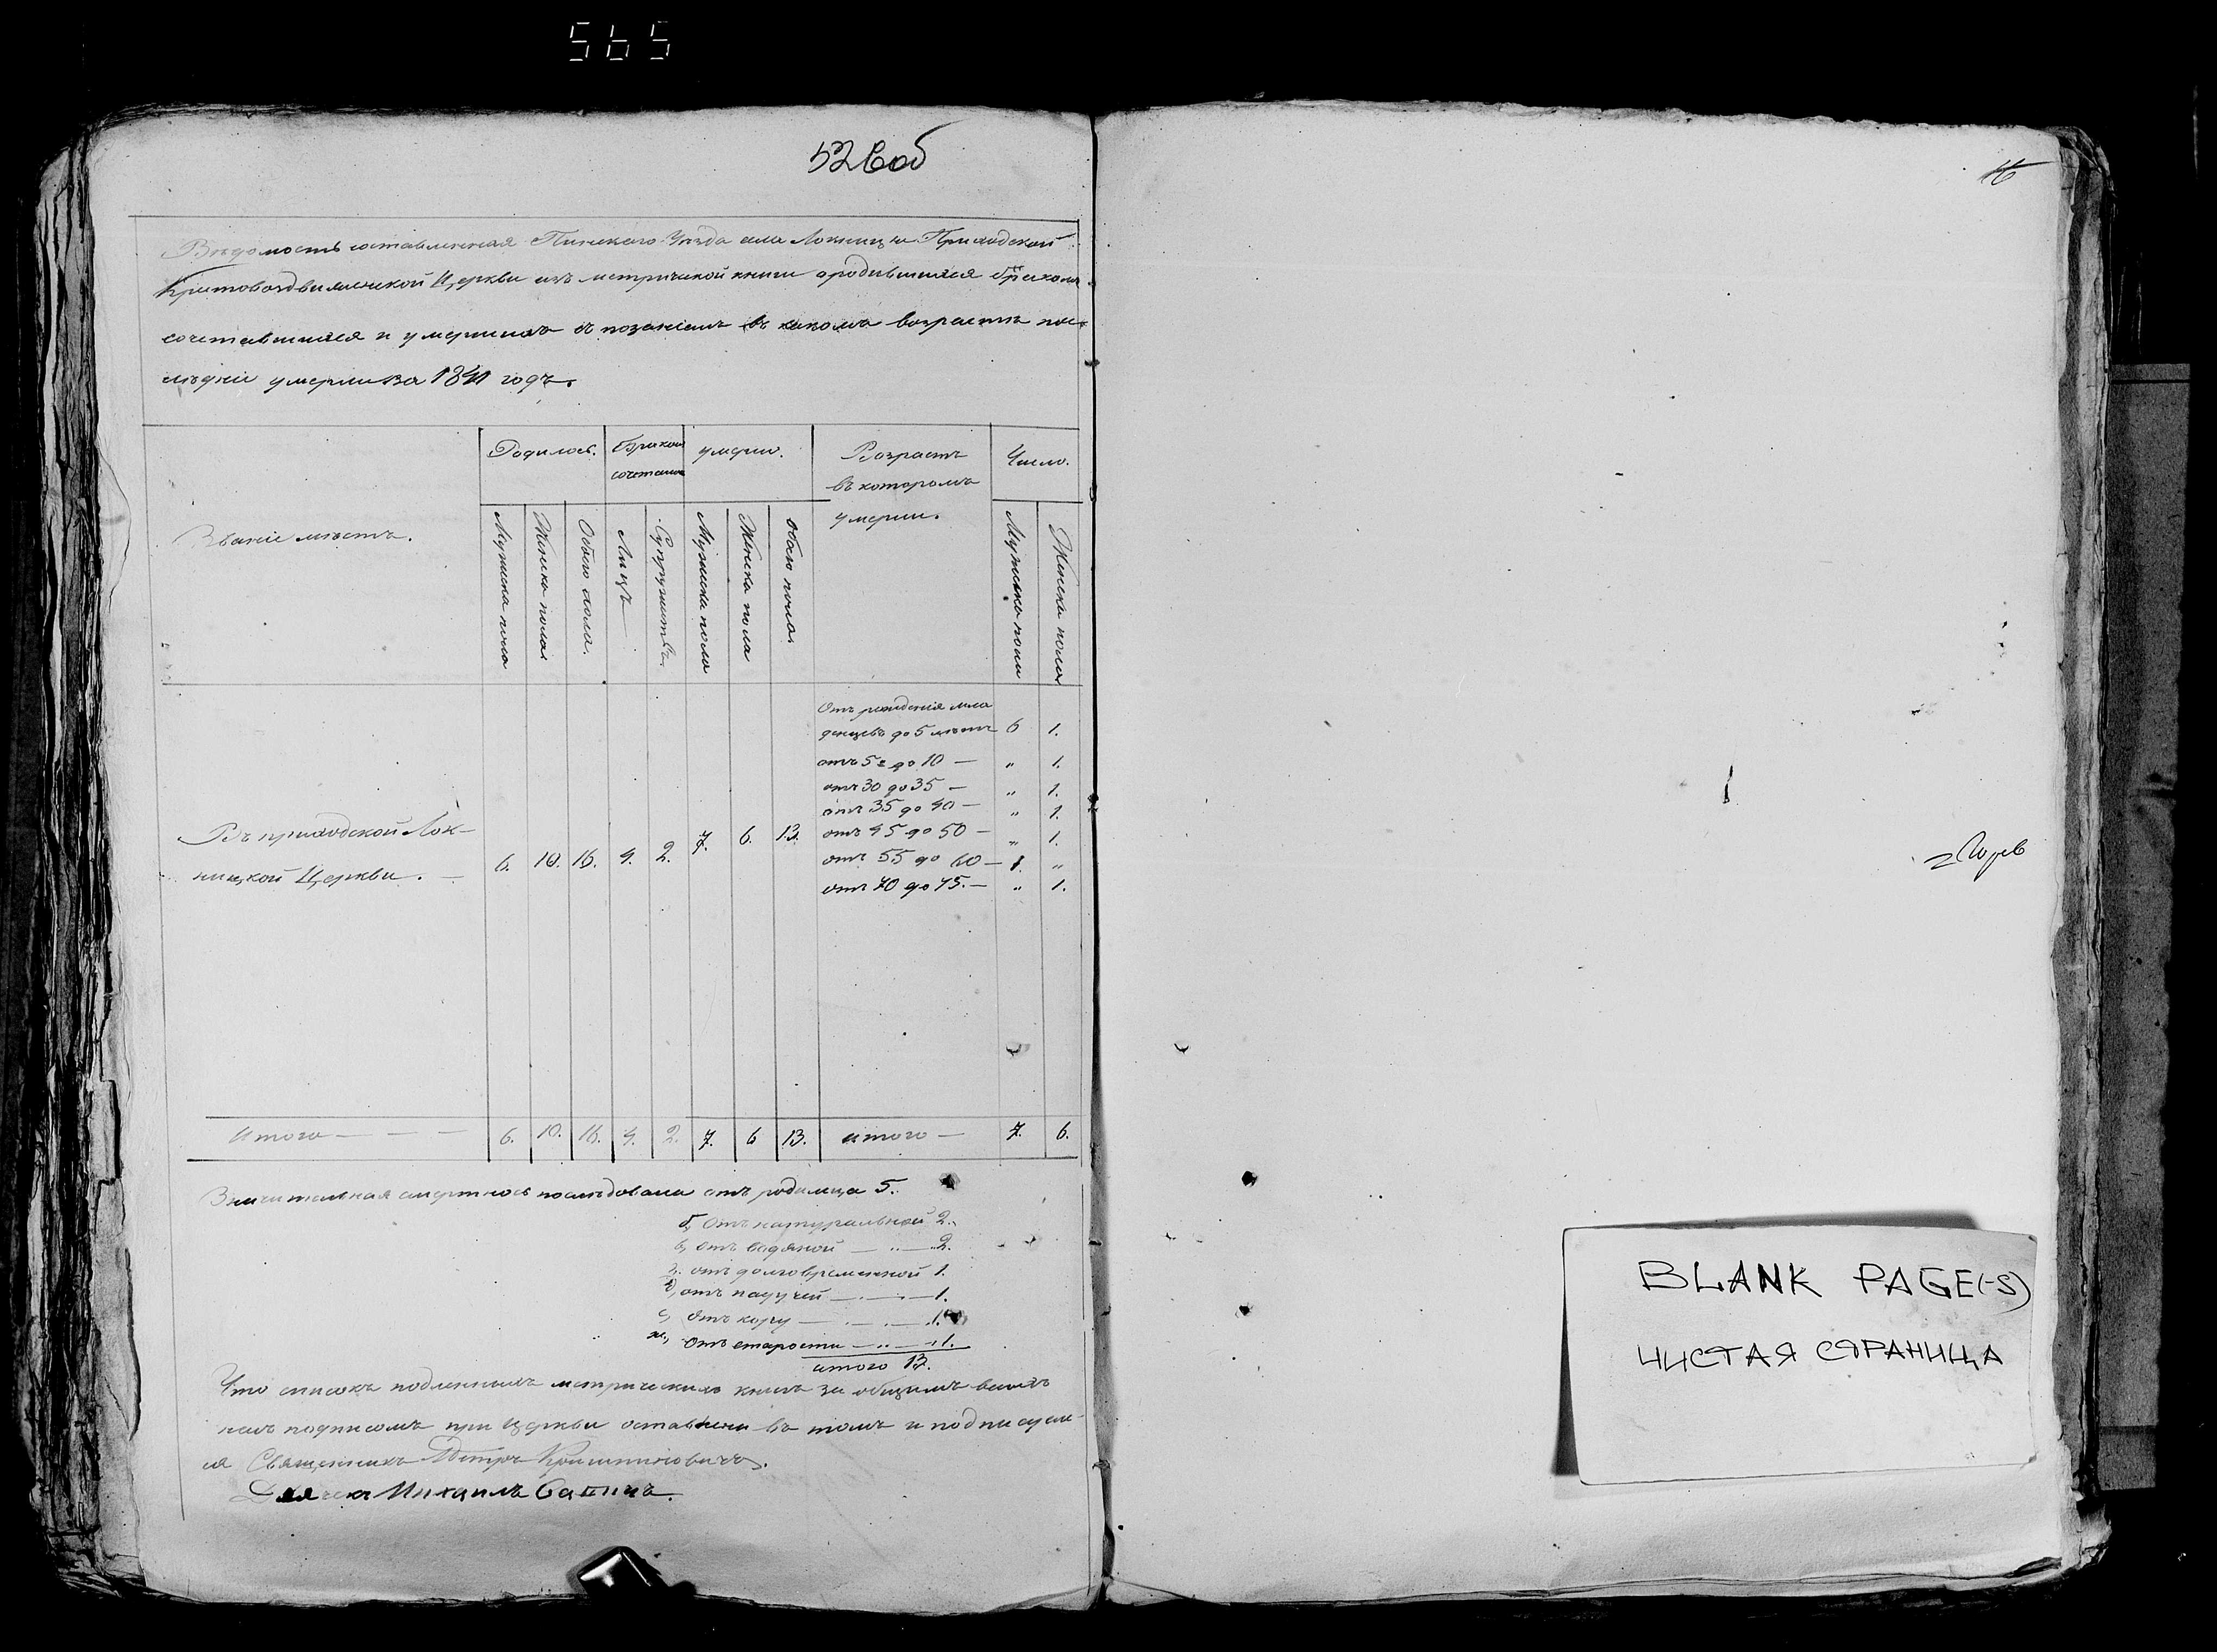 565
526об
Вѣдомость составленная Пинскаго Уѣзда села Локницы Приходской
Крестовоздвиженской Церкви изъ метрической книги о родившихся бракомъ
сочетавшихся и умершихъ съ показаніемъ въ какомъ возрастѣ пос-
лѣдніе умерли за 1841 годъ.
Званіе мѣстъ.
Родилось.
Бракомъ
сочетались
умерло.
Возрастъ
въ которомъ
умерли.
Число.
Мужеска пола
Женска пола
Обоего пола.
Лицъ
Супружествъ
Мужеска пола
Женска пола
Обоего пола.
Мужеска пола
Женска пола
Отъ рожденія мла
денцевъ до 5 лѣтъ 6 1.
отъ 5 до 10 — „ 1.
отъ 30 до 35 — „ 1.
отъ 35 до 40 — „ 1.
отъ 45 до 50 — „ 1.
отъ 55 до 60 — 1. „
отъ 70 до 75. — „ 1.
Въ приходской Лок-
ницкой Церкви. — 6. 10. 16. 4. 2. 7. 6. 13.
Итого — — — 6. 10. 16. 4. 2. 7. 6 13. итого — 7. 6.
Значительная смертность послѣдовала отъ родимца 5.
б, отъ натуральной 2.
в, отъ водяной — „ — 2.
г. отъ долговременной 1.
д, отъ падучей — 1.
е, отъ кору — 1.
ж, отъ старости — „ — 1.
итого 13.
Что списокъ подлиннымъ метрическимъ книгъ за общимъ всѣхъ
насъ подписомъ при Церкви оставлены въ томъ и подписуем-
ся Священникъ Петръ
Дьячекъ Михаилъ
16
BLANK PAGE(-S)
ЧИСТАЯ СТРАНИЦА